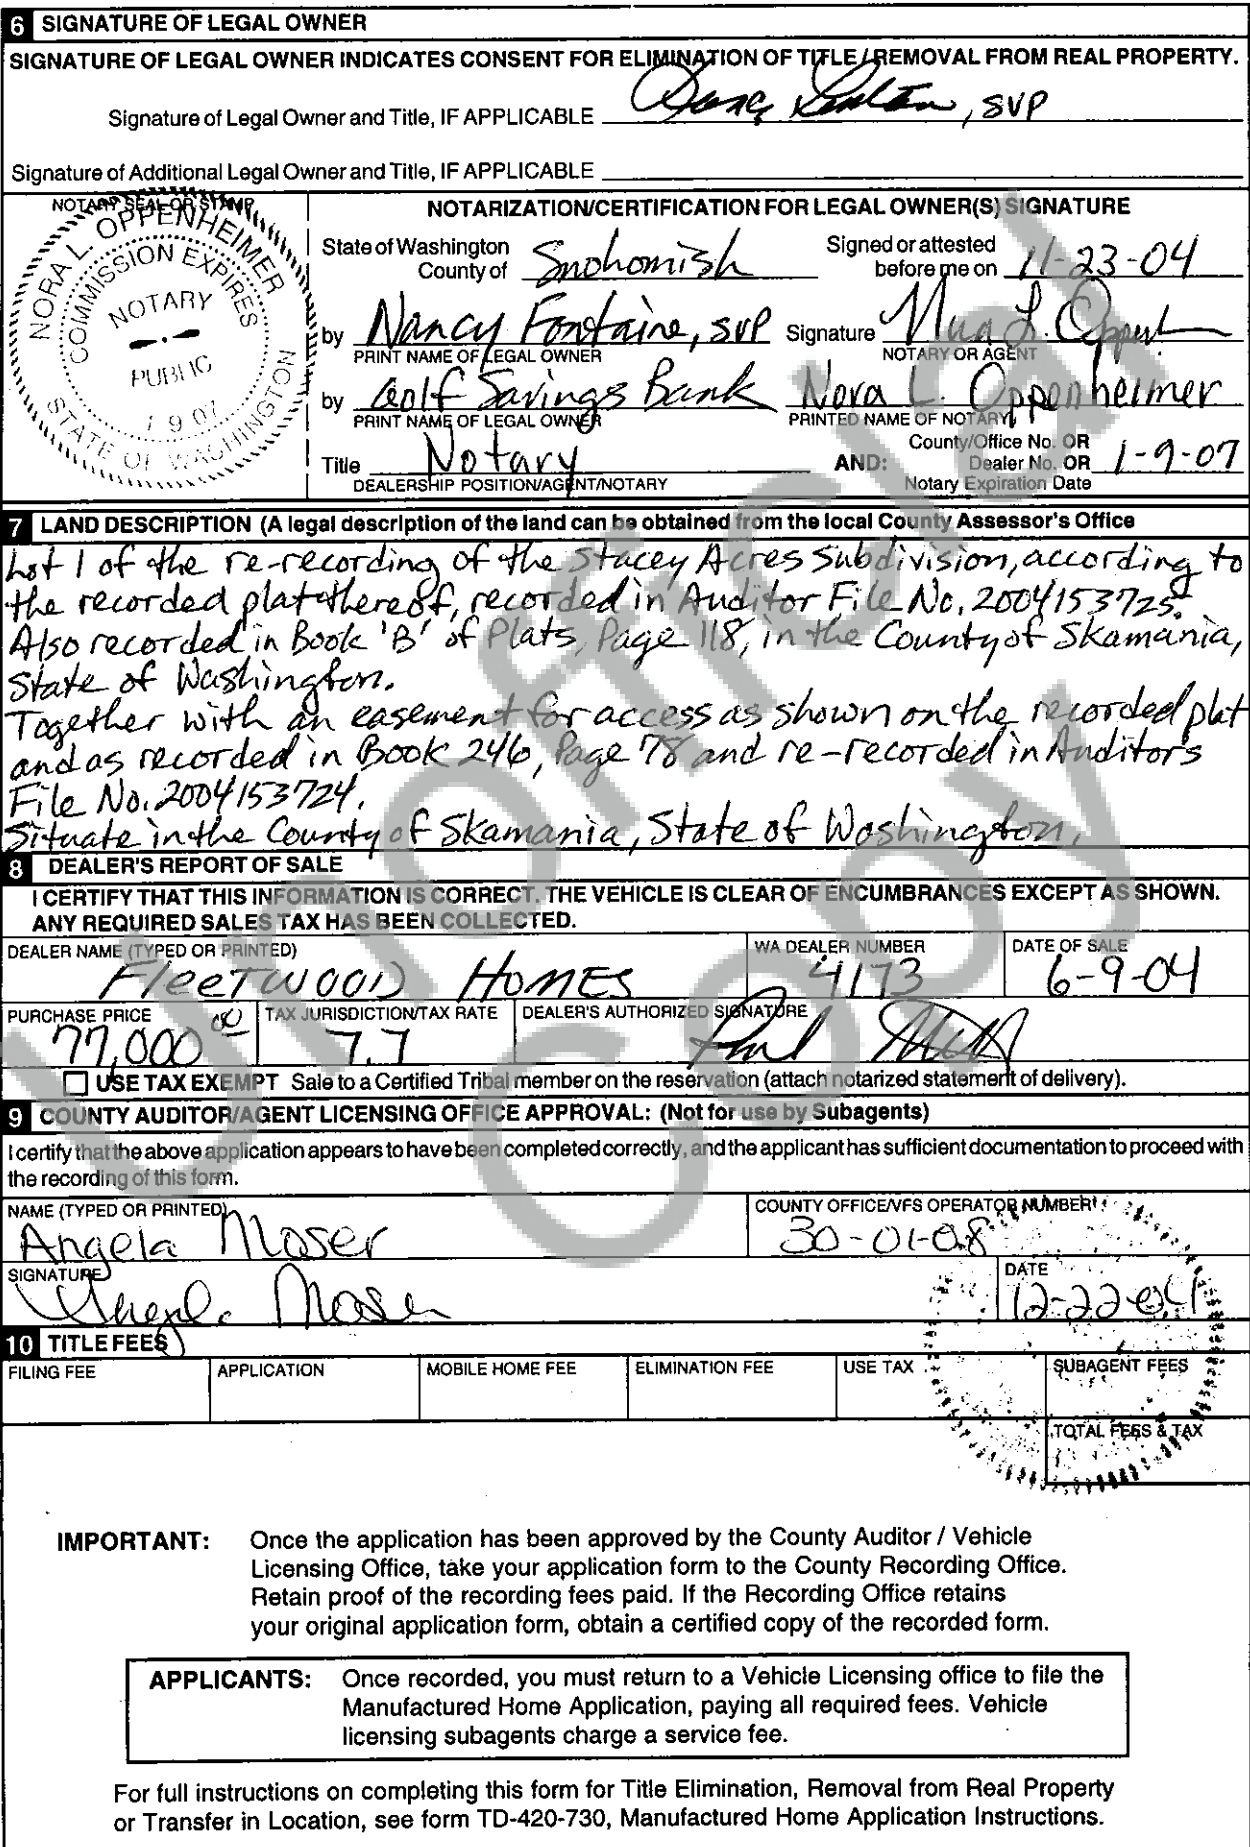 6 SIGNATURE OF LEGAL OWNER
SIGNATURE OF LEGAL OWNER INDICATES CONSENT FOR ELIMINATION OF TITLE / REMOVAL FROM REAL PROPERTY.
Signature of Legal Owner and Title, IF APPLICABLE , SVP
Signature of Additional Legal Owner and Title, IF APPLICABLE
NOTARY SEAL OR STAMP
NORA L. OPPENHEIMER
COMMISSION EXPIRES
NOTARY
PUBLIC
1 9 07
STATE OF WASHINGTON
NOTARIZATION/CERTIFICATION FOR LEGAL OWNER(S) SIGNATURE
State of Washington
County of Snohomish
Signed or attested
before me on 11-23-04
by Nancy Fontaine, SVP Signature Nora L. Oppenh
PRINT NAME OF LEGAL OWNER NOTARY OR AGENT
by Golf Savings Bank Nora L. Oppenheimer
PRINT NAME OF LEGAL OWNER PRINTED NAME OF NOTARY
Title Notary
DEALERSHIP POSITION/AGENT/NOTARY
AND: County/Office No. OR
Dealer No. OR 1-9-07
Notary Expiration Date
7 LAND DESCRIPTION (A legal description of the land can be obtained from the local County Assessor's Office
Lot 1 of the re-recording of the Stacey Acres Subdivision, according to
the recorded plat thereof, recorded in Auditor File No. 2004153725.
Also recorded in Book 'B' of Plats, Page 118, in the County of Skamania,
State of Washington.
Together with an easement for access as shown on the recorded plat
and as recorded in Book 246, Page 78 and re-recorded in Auditors
File No. 2004153724.
Situate in the County of Skamania, State of Washington.
8 DEALER'S REPORT OF SALE
I CERTIFY THAT THIS INFORMATION IS CORRECT. THE VEHICLE IS CLEAR OF ENCUMBRANCES EXCEPT AS SHOWN.
ANY REQUIRED SALES TAX HAS BEEN COLLECTED.
DEALER NAME (TYPED OR PRINTED) WA DEALER NUMBER DATE OF SALE
FleeTWOOD HOMES 4173 6-9-04
PURCHASE PRICE TAX JURISDICTION/TAX RATE DEALER'S AUTHORIZED SIGNATURE
77,000 00 7.7
USE TAX EXEMPT Sale to a Certified Tribal member on the reservation (attach notarized statement of delivery).
9 COUNTY AUDITOR/AGENT LICENSING OFFICE APPROVAL: (Not for use by Subagents)
I certify that the above application appears to have been completed correctly, and the applicant has sufficient documentation to proceed with
the recording of this form.
NAME (TYPED OR PRINTED) COUNTY OFFICE/VFS OPERATOR NUMBER
Angela Moser 30-01-08
SIGNATURE DATE
Angela Moser 12-22-04
10 TITLE FEES
FILING FEE APPLICATION MOBILE HOME FEE ELIMINATION FEE USE TAX SUBAGENT FEES
TOTAL FEES & TAX
IMPORTANT: Once the application has been approved by the County Auditor / Vehicle
Licensing Office, take your application form to the County Recording Office.
Retain proof of the recording fees paid. If the Recording Office retains
your original application form, obtain a certified copy of the recorded form.
APPLICANTS: Once recorded, you must return to a Vehicle Licensing office to file the
Manufactured Home Application, paying all required fees. Vehicle
licensing subagents charge a service fee.
For full instructions on completing this form for Title Elimination, Removal from Real Property
or Transfer in Location, see form TD-420-730, Manufactured Home Application Instructions.
Unofficial
Copy